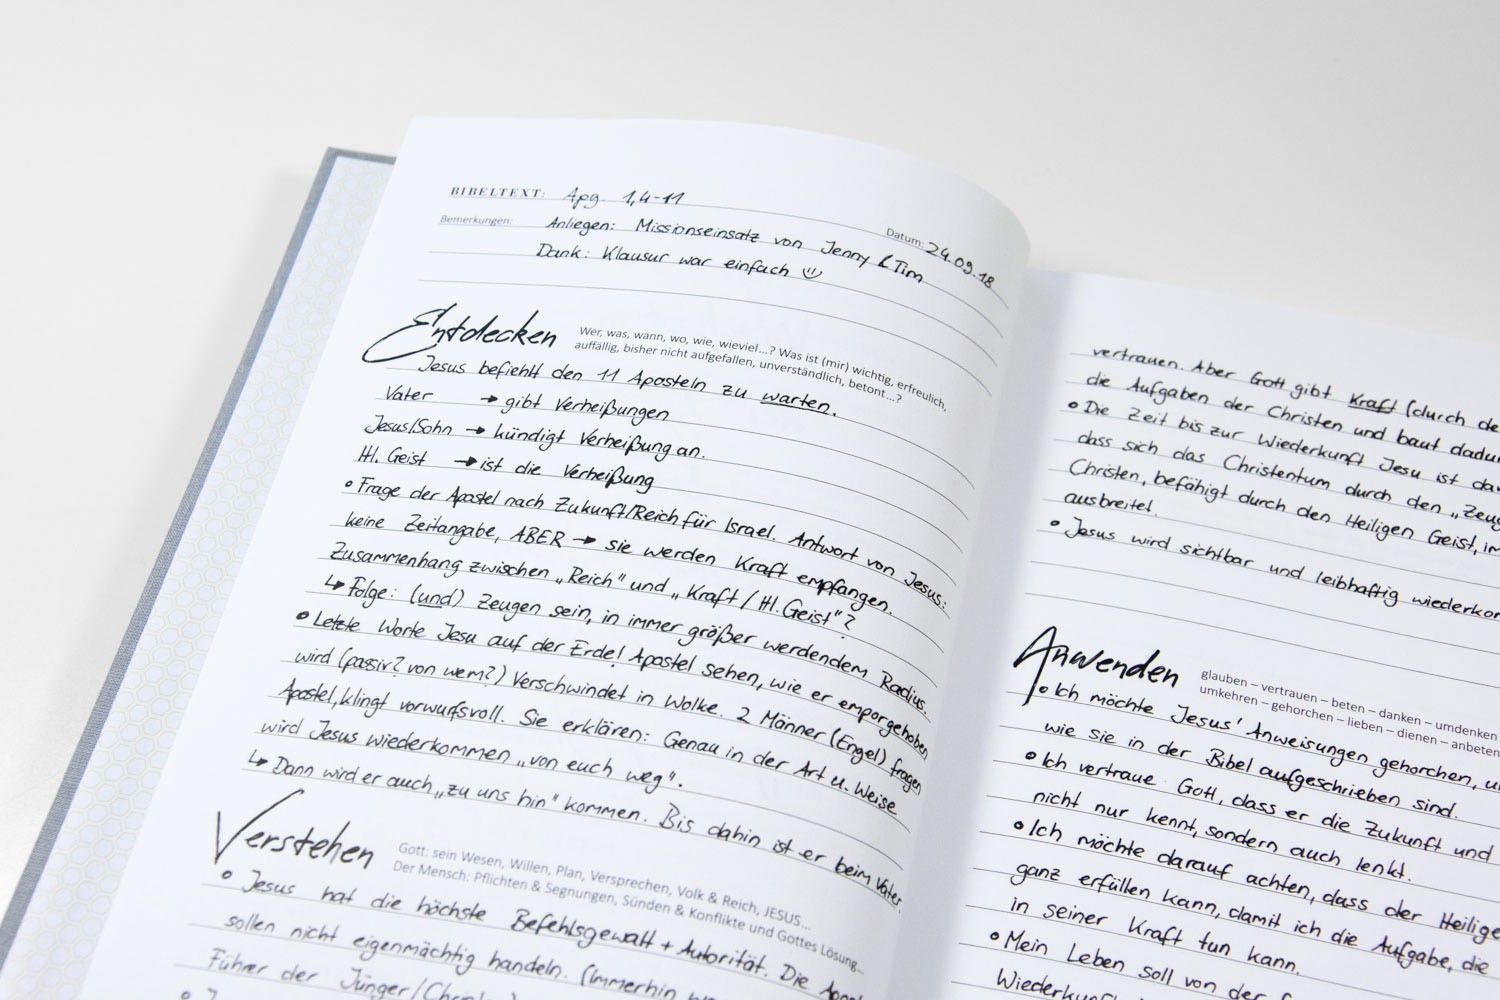 BIBELTEXT: Apg. 1,4-11
Datum: 24.09.18
Bemerkungen: Anliegen: Missionseinsatz von Jenny & Tim
Dank: Klausur war einfach
Entdecken
Wer, was, wann, wo, wie, wieviel...? Was ist (mir) wichtig, erfreulich,
auffällig, bisher nicht aufgefallen, unverständlich, betont...?
Jesus befiehlt den 11 Aposteln zu warten.
Vater → gibt Verheißungen
Jesus/Sohn → kündigt Verheißung an.
Hl. Geist → ist die Verheißung
• Frage der Apostel nach Zukunft/Reich für Israel. Antwort von Jesus:
keine Zeitangabe, ABER → sie werden Kraft empfangen.
Zusammenhang zwischen „Reich" und „Kraft / Hl. Geist"?
↳ Folge: (und) Zeugen sein, in immer größer werdendem Radius.
• Letzte Worte Jesu auf der Erde! Apostel sehen, wie er emporgehoben
wird (passiv? von wem?) Verschwindet in Wolke. 2 Männer (Engel) fragen
Apostel, klingt vorwurfsvoll. Sie erklären: Genau in der Art u. Weise
wird Jesus wiederkommen „von euch weg".
↳ Dann wird er auch „zu uns hin" kommen. Bis dahin ist er beim Vater.
Verstehen
Gott: sein Wesen, Willen, Plan, Versprechen, Volk & Reich, JESUS...
Der Mensch: Pflichten & Segnungen, Sünden & Konflikte und Gottes Lösung...
• Jesus hat die höchste Befehlsgewalt + Autorität. Die
sollen nicht eigenmächtig handeln. (Immerhin
Führer der Jünger/
vertrauen. Aber Gott gibt Kraft (durch
die Aufgaben der Christen und baut
• Die Zeit bis zur Wiederkunft Jesu ist
dass sich das Christentum durch den
Christen, befähigt durch den Heiligen Geist,
ausbreitet.
• Jesus wird sichtbar und leibhaftig
Anwenden
glauben – vertrauen – beten – danken – umdenken
umkehren – gehorchen – lieben – dienen – anbeten
• Ich möchte Jesus' Anweisungen gehorchen,
wie sie in der Bibel aufgeschrieben sind.
• Ich vertraue Gott, dass er die Zukunft und
nicht nur kennt, sondern auch lenkt.
• Ich möchte darauf achten, dass der
ganz erfüllen kann, damit ich die Aufgabe, die
in seiner Kraft tun kann.
• Mein Leben soll von der